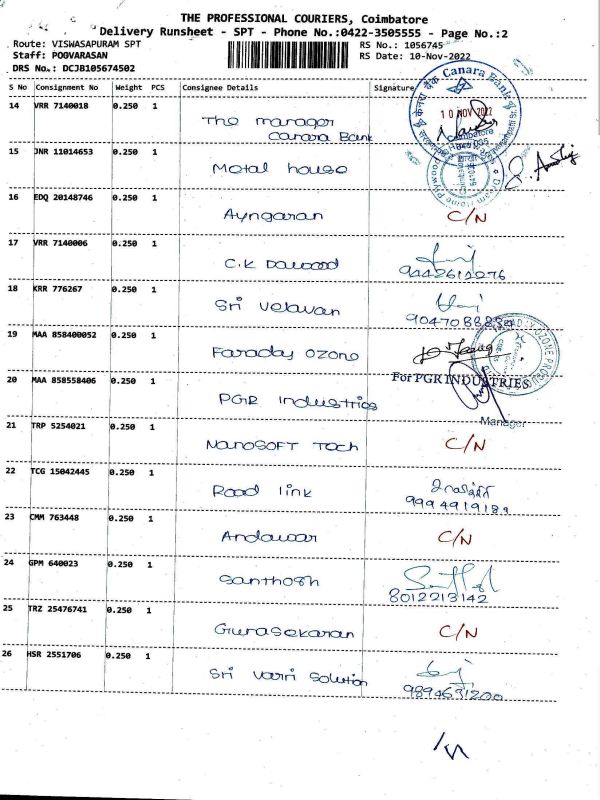 THE PROFESSIONAL COURIERS, Coimbatore
Delivery Runsheet - SPT - Phone No.:0422-3505555 - Page No.:2
Route: VISWASAPURAM SPT
RS No.: 1056745
Staff: POOVARASAN
RS Date: 10-Nov-2022
DRS No.: DCJB105674502
S No Consignment No Weight PCS Consignee Details Signature
14 VRR 7140018 0.250 1
The manager
Canara Bank
Canara Bank
केनरा बैंक
10 NOV 2022
Coimbatore
15 JNR 11014653 0.250 1
Metal house
16 EDQ 20148746 0.250 1
Ayngaran C/N
17 VRR 7140006 0.250 1
C.K Dawood
9442612276
18 KRR 776267 0.250 1
Sri Velavan
19 MAA 858400052 0.250 1
Faraday Ozone
20 MAA 858558406 0.250 1
For PGR INDUSTRIES
PGR Industries
Manager
21 TRP 5254021 0.250 1
Nanosoft Tech C/N
22 TCG 15042445 0.250 1
Road link
23 CMM 763448 0.250 1
Andawar C/N
24 GPM 640023 0.250 1
Santhosh
8012213142
25 TRZ 25476741 0.250 1
Gunasekaran C/N
26 HSR 2551706 0.250 1
Sri Varri Solution
9894631200